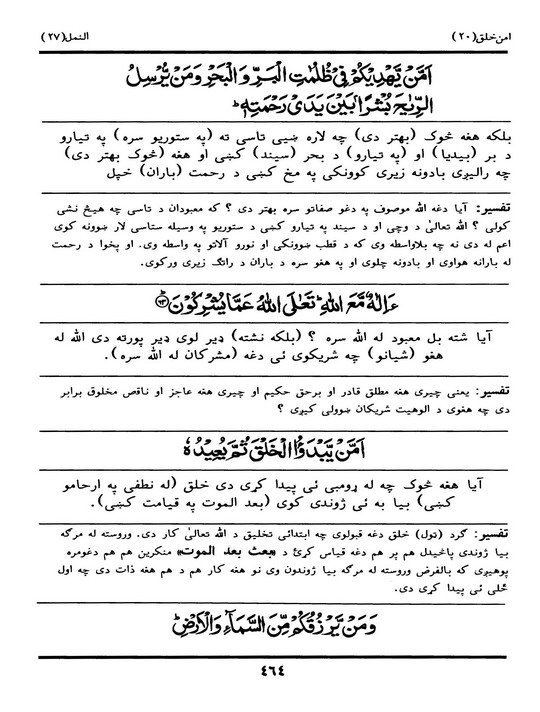 امن خلق (۲۰)
النمل (۲۷)
اَمَّنۡ يَّهۡدِيۡكُمۡ فِىۡ ظُلُمٰتِ الۡبَرِّ وَالۡبَحۡرِ وَمَنۡ يُّرۡسِلُ
الرِّيٰحَ بُشۡرًۢا بَيۡنَ يَدَىۡ رَحۡمَتِهٖؕ
بلکه هغه څوک (بهتر دی) چه لاره ښيی تاسی ته (په ستوريو سره) په تيارو
د بر (بيديا) او (په تيارو) د بحر (سيند) کښی او هغه (څوک بهتر دی)
چه راليږی بادونه زيری کوونکی په مخ کښی د رحمت (باران) خپل
تفسير: آيا دغه الله موصوف په دغو صفاتو سره بهتر دی ؟ که معبودان د تاسی چه هيڅ نشی
کولی ؟ الله تعالیٰ د وچی او د سيند په تيارو کښی د ستوريو په وسيله ستاسی لار ښوونه کوی
اعم له دی نه چه بلاواسطه وی که د قطب ښوونکی او نورو آلاتو په واسطه وی. او پخوا د رحمت
له بارانه هواوی او بادونه چلوی او په هغو سره د باران د راتگ زيری ورکوی.
ءَاِلٰهٌ مَّعَ اللّٰهِؕ تَعٰلَى اللّٰهُ عَمَّا يُشۡرِكُوۡنَؕ ﴿۶۳﴾
آيا شته بل معبود له الله سره ؟ (بلکه نشته) ډير لوی ډير پورته دی الله له
هغو (شيانو) چه شريکوی ئی دغه (مشرکان له الله سره).
تفسير: يعنی چيری هغه مطلق قادر او برحق حکيم او چيری هغه عاجز او ناقص مخلوق برابر
دی چه هغوی د الوهيت شريکان ښوولی کيږی ؟
اَمَّنۡ يَّبۡدَؤُا الۡخَلۡقَ ثُمَّ يُعِيۡدُهٗ
آيا هغه څوک چه له ړومبی ئی پيدا کړی دی خلق (له نطفی په ارحامو
کښی) بيا به ئی ژوندی کوی (بعد الموت په قيامت کښی).
تفسير: گرد (ټول) خلق دغه قبلوی چه ابتدائی تخليق د الله تعالیٰ کار دی. وروسته له مرگه
بيا ژوندی پاڅيدل هم پر هم دغه قياس کړئ د «بعث بعد الموت» منکرين هم هم دغومره
پوهيږی که بالفرض وروسته له مرگه بيا ژوندون وی نو هغه کار هم د هم هغه ذات دی چه اول
ځلی ئی پيدا کړی دی.
وَمَنۡ يَّرۡزُقُكُمۡ مِّنَ السَّمَآءِ وَالۡاَرۡضِؕ
٤٦٤